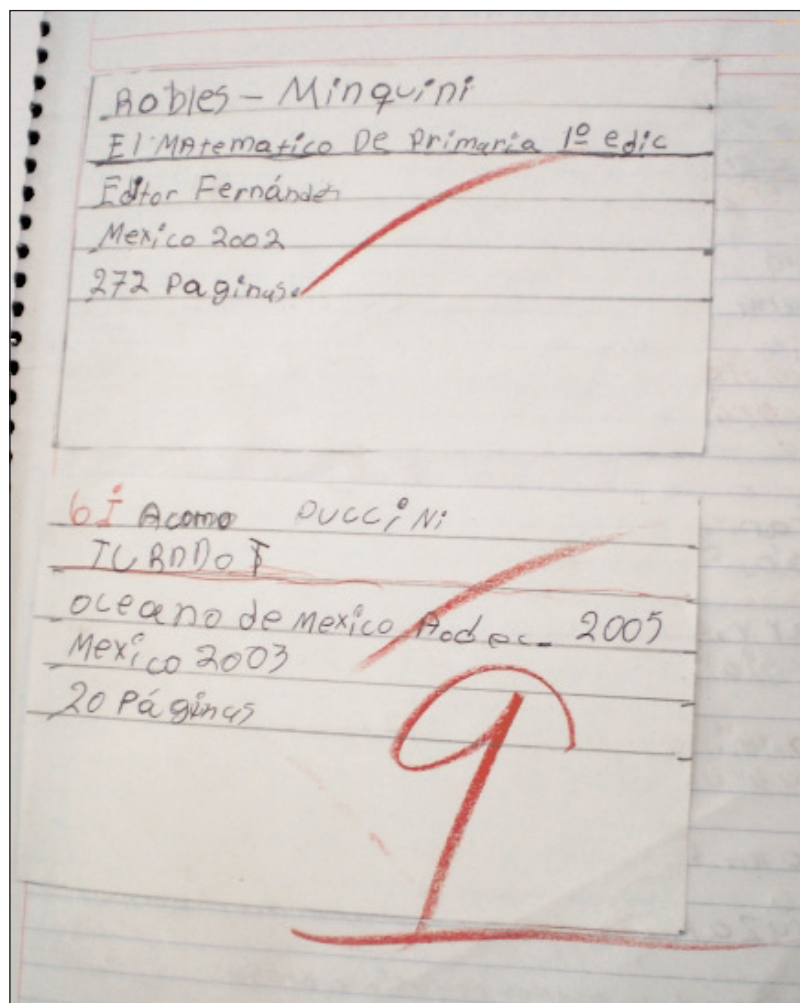 Robles - Minquini
El Matematico De Primaria 1º edic
Editor Fernández
Mexico 2002
272 Paginas.
GI Acomo PUCCiNi
TURANDOT
oceano de Mexico 2005
Mexico 2003
20 Páginas
9